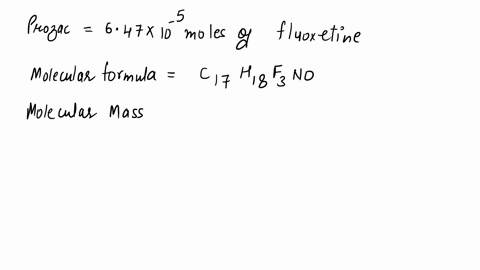 Prozac = 6.47 × 10⁻⁵ moles of fluoxetine
Molecular formula = C₁₇ H₁₈ F₃ NO
Molecular Mass